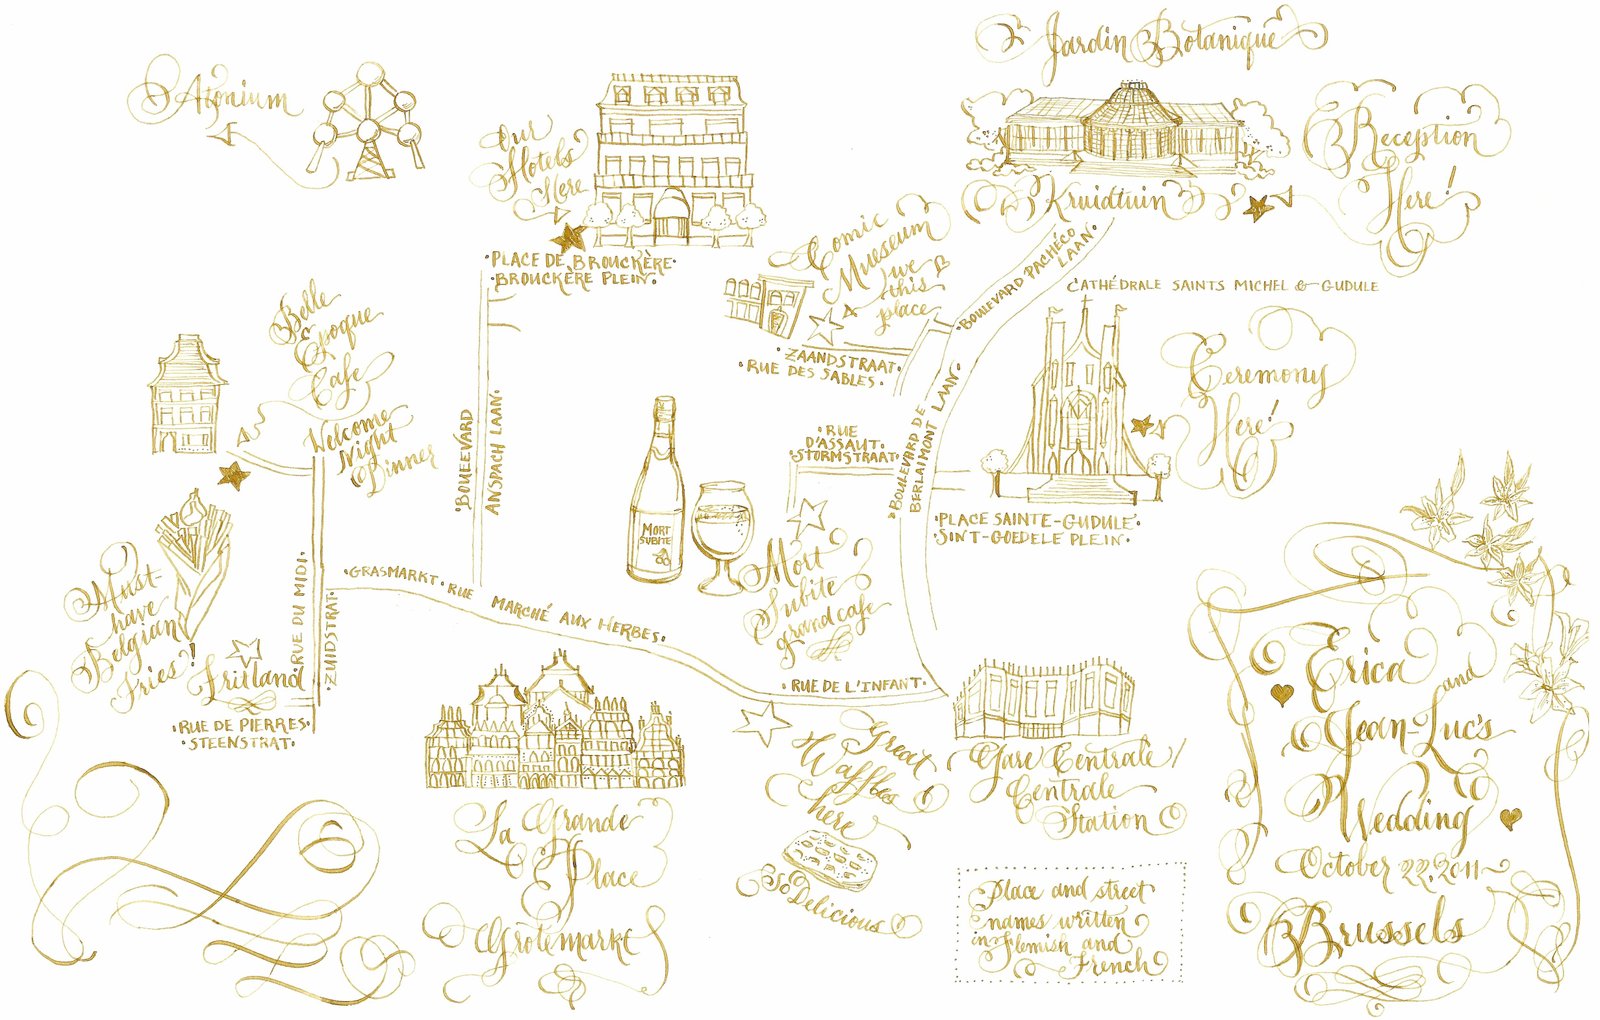 Atonium
Our
Hotels
Here
PLACE DE BROUCKÈRE
BROUCKÈRE PLEIN
Jardin Botanique
Kruidtuin
Reception
Here!
Comic
Museum
we
this
place
ZAANDSTRAAT
RUE DES SABLES
BOULEVARD PACHÉCO
LAAN
CATHÉDRALE SAINTS MICHEL & GUDULE
Ceremony
Here!
PLACE SAINTE-GUDULE
SINT-GOEDELE PLEIN
Belle
Epoque
Cafe
Welcome
Night
Dinner
BOULEVARD
ANSPACH LAAN
RUE
D'ASSAUT
STORMSTRAAT
BOULEVARD DE
BERLAIMONT LAAN
MORT
SUBITE
Mort
Subite
grand cafe
GRASMARKT · RUE MARCHÉ AUX HERBES
RUE DU MIDI
ZUIDSTRAT
Must-
have
Belgian
Fries!
Fritland
RUE DE PIERRES
STEENSTRAT
RUE DE L'INFANT
La Grande
Place
Grotemarkt
Great
Waffles
here
So Delicious
Gare Centrale/
Centrale
Station
Place and street
names written
in Flemish and
French
Erica
and
Jean-Luc's
Wedding
October 22, 2011
Brussels